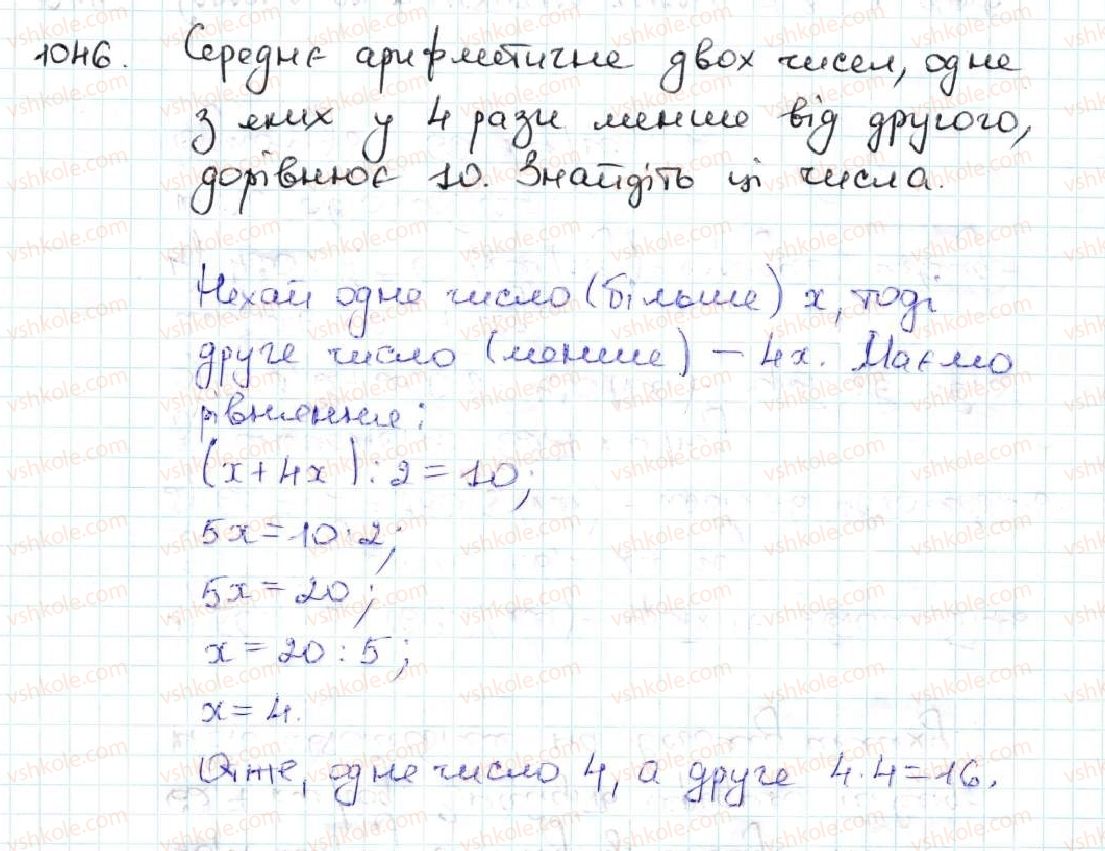 1046. Середнє арифметичне двох чисел, одне
з яких у 4 рази менше від другого,
дорівнює 10. Знайдіть ці числа.
Нехай одне число (більше) x, тоді
друге число (менше) – 4x. Маємо
рівняння:
(x+4x):2=10;
5x=10·2;
5x=20;
x=20:5;
x=4.
Отже, одне число 4, а друге 4·4=16.